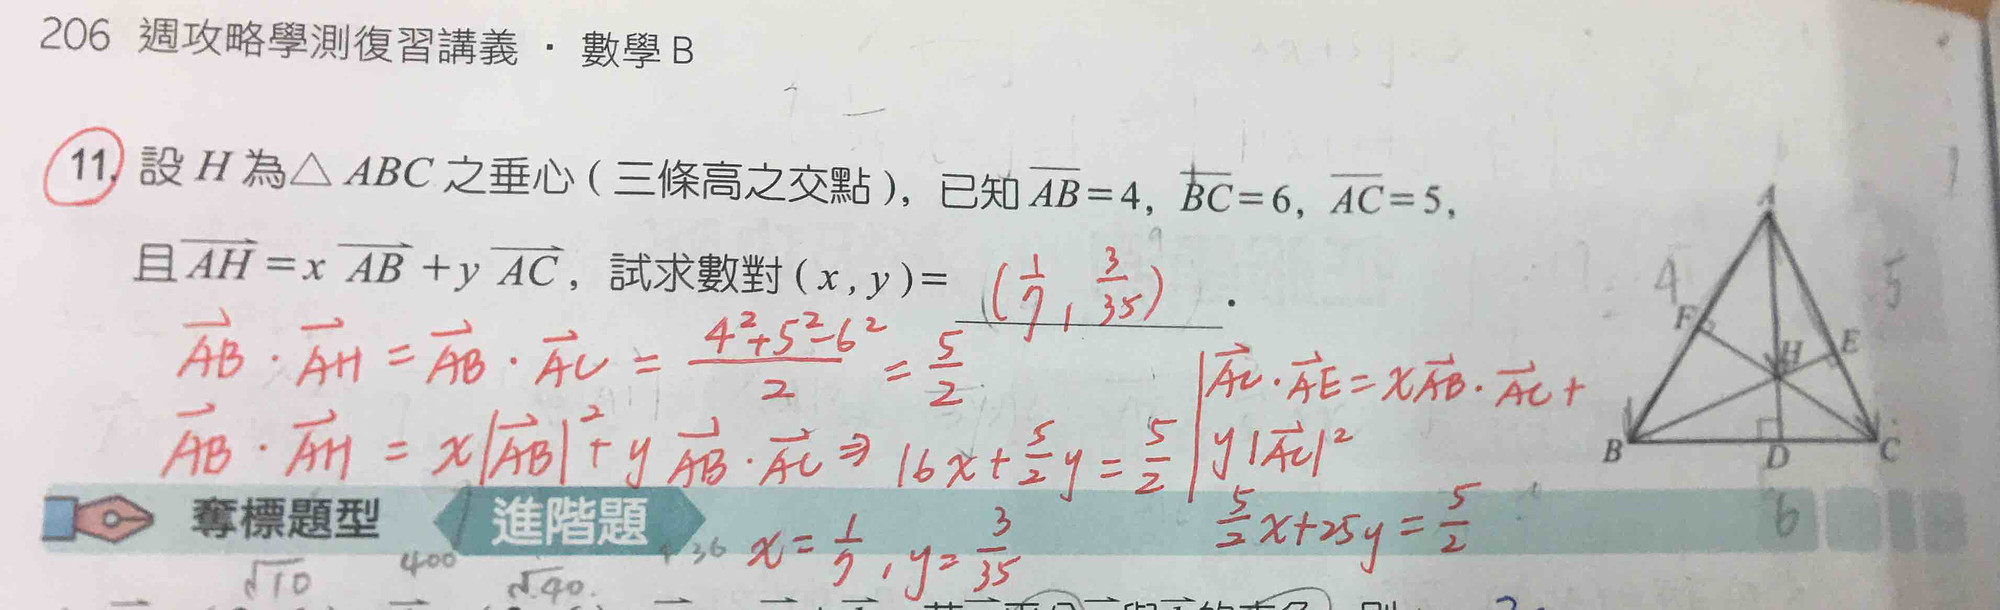 206 週攻略學測復習講義・數學 B
11. 設 H 為△ ABC 之垂心 ( 三條高之交點 ), 已知 \overline{AB}=4, \overline{BC}=6, \overline{AC}=5,
且 \overrightarrow{AH}=x \overrightarrow{AB}+y \overrightarrow{AC}, 試求數對 ( x , y )= (1/7, 3/35).
\overrightarrow{AB}·\overrightarrow{AH}=\overrightarrow{AB}·\overrightarrow{AC}=\frac{4²+5²-6²}{2}=\frac{5}{2}
\overrightarrow{AB}·\overrightarrow{AH}=x|\overrightarrow{AB}|²+y\overrightarrow{AB}·\overrightarrow{AC}⇒16x+\frac{5}{2}y=\frac{5}{2}
\overrightarrow{AC}·\overrightarrow{AE}=x\overrightarrow{AB}·\overrightarrow{AC}+
y|\overrightarrow{AC}|²
\frac{5}{2}x+25y=\frac{5}{2}
x=\frac{1}{7}, y=\frac{3}{35}
A
4
5
F
H
E
B
D
C
6
奪標題型 進階題
√10
400
√40.
36